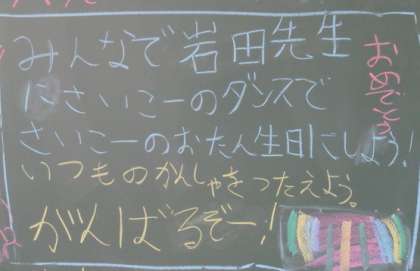 みんなで岩田先生
にさいこーのダンスで
さいこーのおたん生日にしよう!
いつものかんしゃをつたえよう。
がんばるぞー!
おめでとう